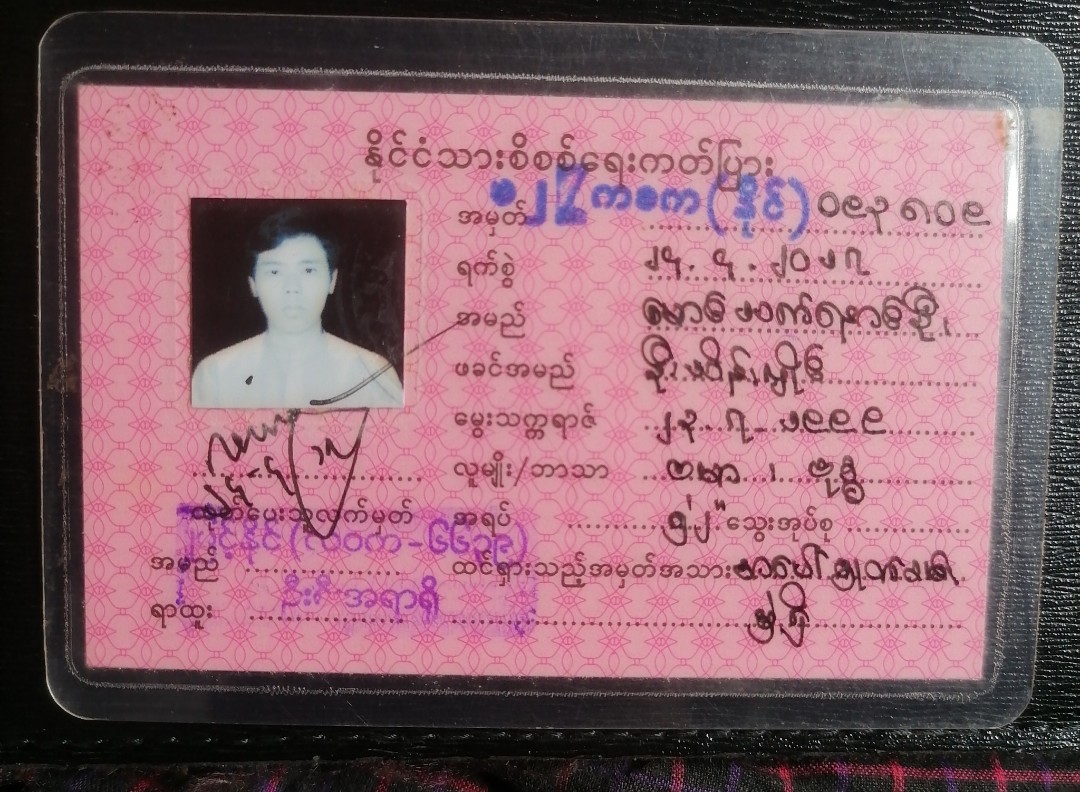 နိုင်ငံသားစိစစ်ရေးကတ်ပြား
အမှတ် ၁၂/ကစက(နိုင်)၀၉၃၈၀၉
ရက်စွဲ ၂၄.၄.၂၀၁၇
အမည် မောင်
ဖခင်အမည် ဦး
မွေးသက္ကရာဇ် ၂၃.၇.၁၉၉၉
လူမျိုး/ဘာသာ ဗမာ ၊ ဗုဒ္ဓ
အရပ် ၅'၂" သွေးအုပ်စု
ထင်ရှားသည့်အမှတ်အသား
ထုတ်ပေးသူလက်မှတ်
အမည် (လဝက-၆၆၃၉)
ရာထူး ဦးစီးအရာရှိ